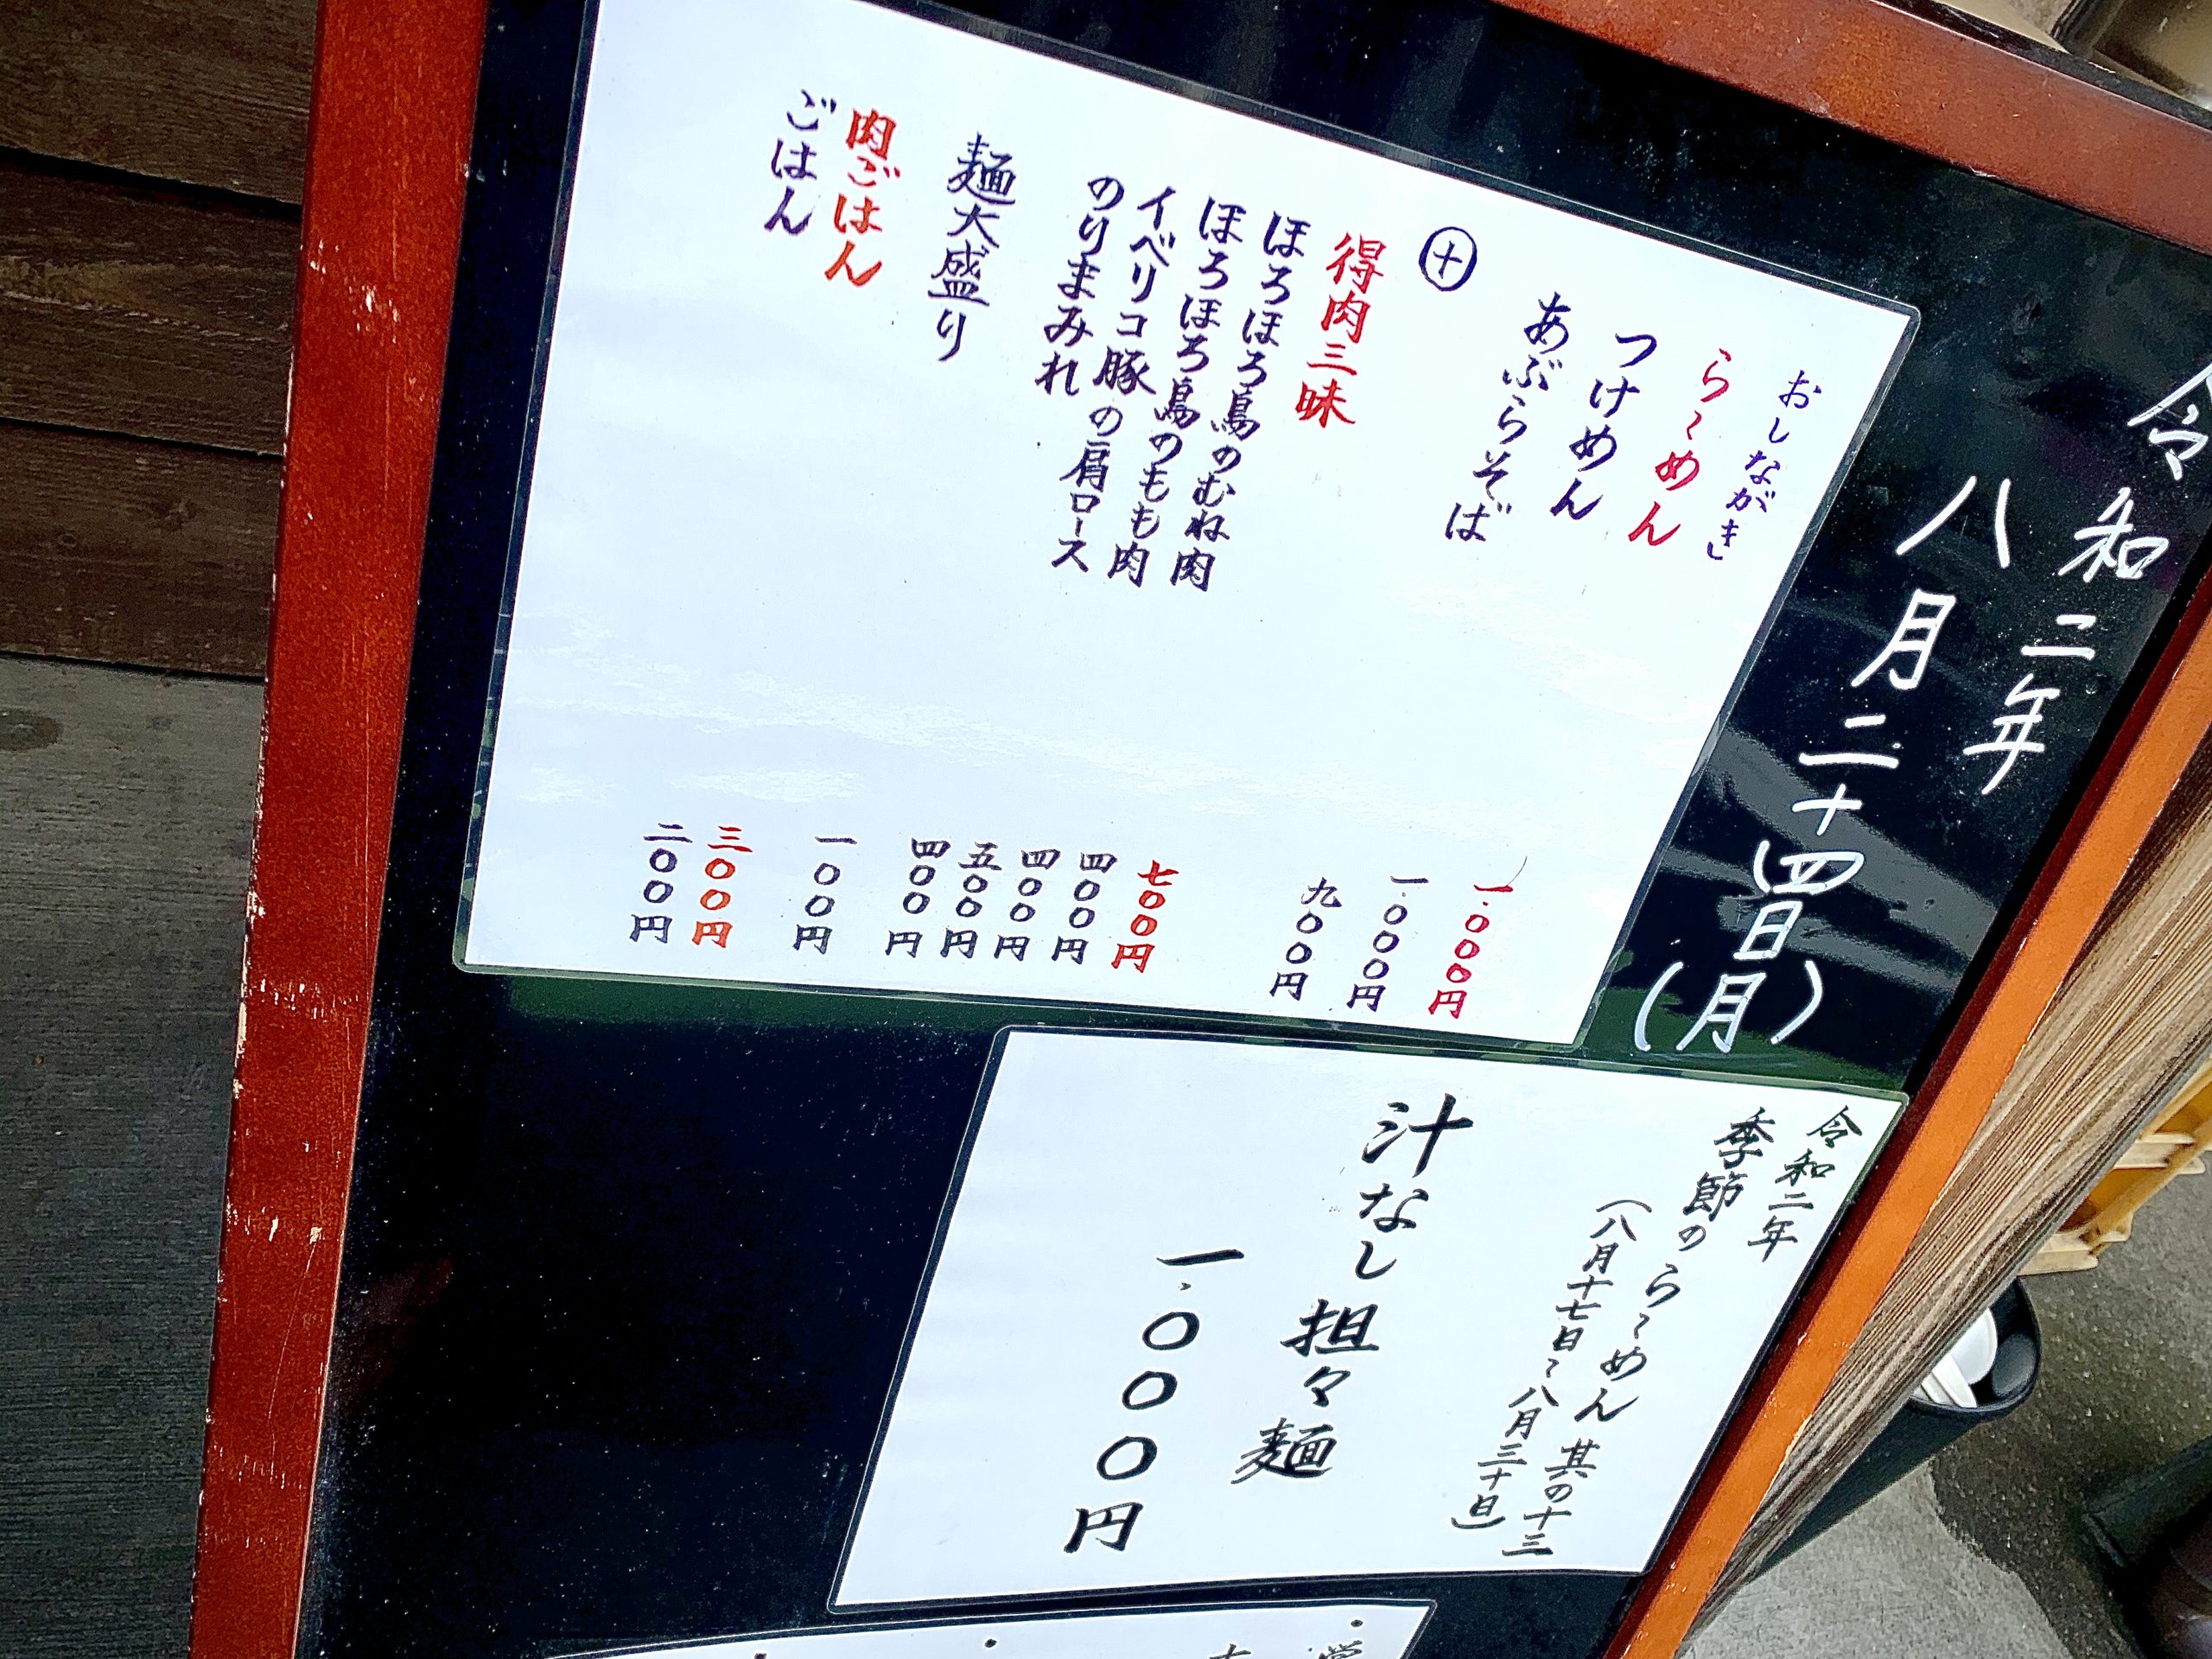 令和二年
八月二十四日(月)
おしながき
ら〜めん 一.〇〇〇円
つけめん 一.〇〇〇円
あぶらそば 九〇〇円
㊉
得肉三昧 七〇〇円
ほろほろ鳥のむね肉 四〇〇円
ほろほろ鳥のもも肉 四〇〇円
イベリコ豚の肩ロース 五〇〇円
のりまみれ 四〇〇円
麺大盛り 一〇〇円
肉ごはん 三〇〇円
ごはん 二〇〇円
令和二年
季節のら〜めん 其の十三
(八月十七日〜八月三十日)
汁なし担々麺
一.〇〇〇円